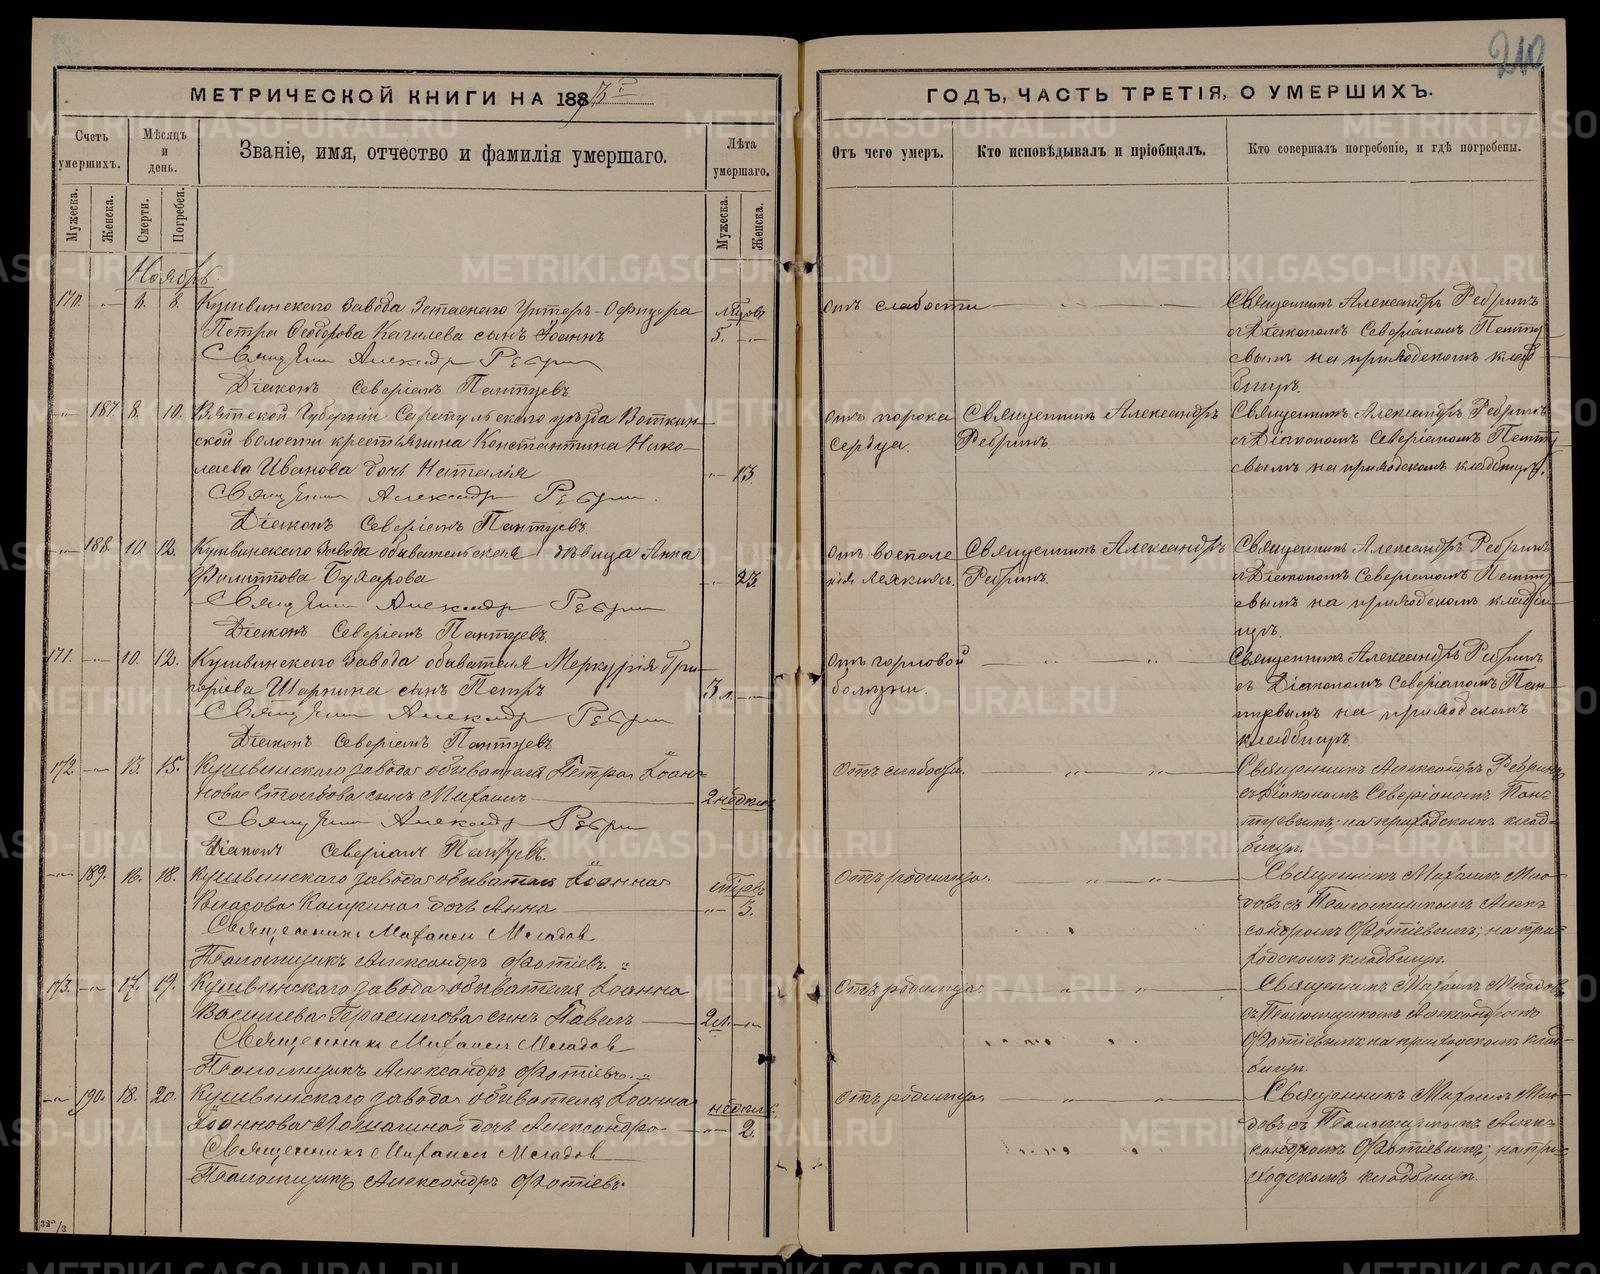 210
МЕТРИЧЕСКОЙ КНИГИ НА 1883
ГОДЪ, ЧАСТЬ ТРЕТІЯ, О УМЕРШИХЪ.
Счетъ умершихъ.
Мѣсяцъ и день.
Званіе, имя, отчество и фамилія умершаго.
Лѣта умершаго.
Отъ чего умеръ.
Кто исповѣдывалъ и пріобщалъ.
Кто совершалъ погребеніе, и гдѣ погребены.
Мужеска.
Женска.
Смерти.
Погребен.
Мужеска.
Женска.
Ноябрь
170. 6. 8. Кушвинскаго завода Унтеръ-Офицера
Петра Ѳеодорова сынъ Іоаннъ 5.
Священникъ Александръ Ребрин
Діаконъ Северіанъ Пантуевъ
отъ слабости
Священникъ Александръ Ребринъ
съ Діакономъ Северіаномъ Панту
евымъ на приходскомъ клад
бищѣ.
187. 8. 10. Вятской Губерніи Сарапульскаго уѣзда Воткин
ской волости крестьянина Константина Нико-
лаева Иванова дочь Наталія 13
Священникъ Александръ Ребрин
Діаконъ Северіанъ Пантуевъ
отъ порока
сердца.
Священникъ Александръ
Ребринъ
Священникъ Александръ Ребринъ
съ Діакономъ Северіаномъ Панту
евымъ на приходскомъ кладбищѣ.
188. 10. 12. Кушвинскаго завода обывательская дѣвица Анна
Филиппова Бухарова 23
Священникъ Александръ Ребрин
Діаконъ Северіанъ Пантуевъ
отъ воспале
нія легкихъ.
Священникъ Александръ
Ребринъ.
Священникъ Александръ Ребринъ
съ Діакономъ Северіаномъ Панту
евымъ на приходскомъ кладби
щѣ.
171. 10. 12. Кушвинскаго завода обывателя Меркурія Гри
горіева сынъ Петръ 3 л.
Священникъ Александръ Ребрин
Діаконъ Северіанъ Пантуевъ
отъ горловой
болѣзни.
Священникъ Александръ Ребринъ
съ Діакономъ Северіаномъ Пан-
туевымъ на приходскомъ
кладбищѣ.
172. 13. 15. Кушвинскаго завода обывателя Петра Іоан-
нова Столбова сынъ Михаилъ 2 недѣли
Священникъ Александръ Ребрин
Діаконъ Северіанъ Пантуевъ.
Отъ слабости.
Священникъ Александръ Ребринъ
съ Діакономъ Северіаномъ Пан-
туевымъ; на приходскомъ клад-
бищѣ.
189. 16. 18. Кушвинскаго завода обывателя Іоанна
Власова дочь Анна 3.
Священникъ Михаилъ
Псаломщикъ Александръ Фотіевъ.
Отъ родимца.
Священникъ Михаилъ
съ Псаломщикомъ Алек-
сандромъ Фотіевымъ; на при-
ходскомъ кладбищѣ.
173. 17. 19. Кушвинскаго завода обывателя Іоанна
Васильева Герасимова сынъ Павелъ 2 л.
Священникъ Михаилъ
Псаломщикъ Александръ Фотіевъ.
Отъ родимца.
Священникъ Михаилъ
съ Псаломщикомъ Александромъ
Фотіевымъ; на приходскомъ клад-
бищѣ.
190. 18. 20. Кушвинскаго завода обывателя Іоанна
Іоаннова дочь Александра недѣли 2.
Священникъ Михаилъ
Псаломщикъ Александръ Фотіевъ.
Отъ родимца.
Священникъ Михаилъ
съ Псаломщикомъ Алек-
сандромъ Фотіевымъ; на при-
ходскомъ кладбищѣ.
METRIKI.GASO-URAL.RU